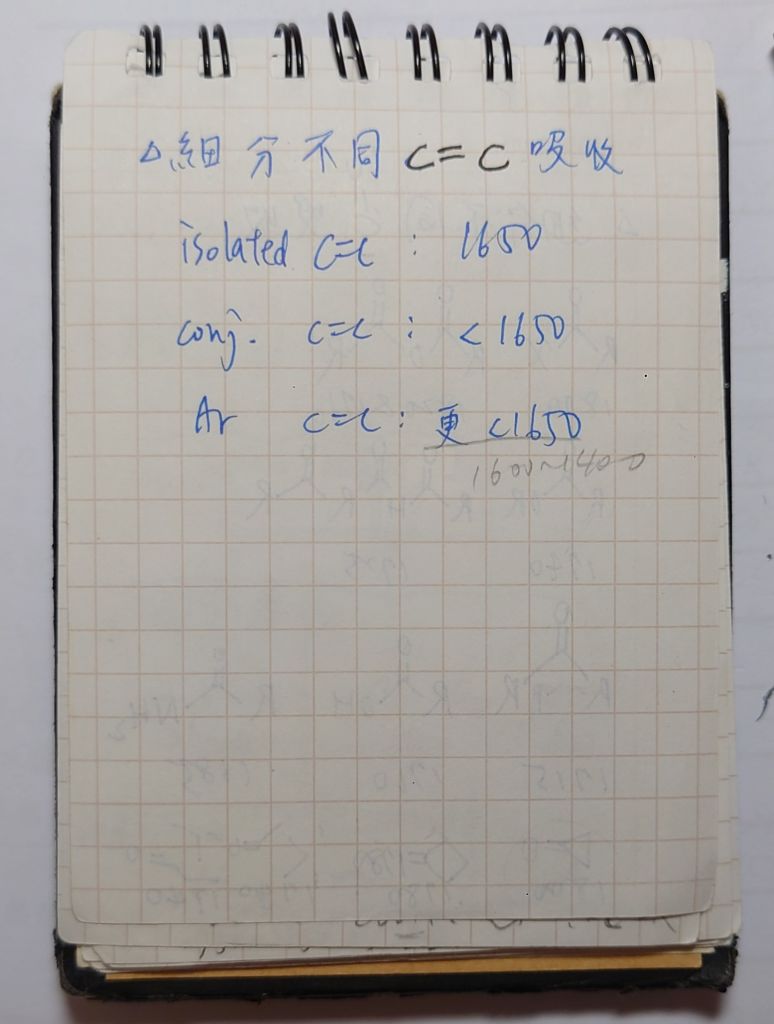 △細分不同 C=C 吸收
isolated C=C : 1650
conj. C=C : <1650
Ar C=C : 更 <1650
1600~1400